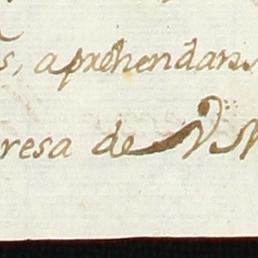 s, aprehendans
resa de VS